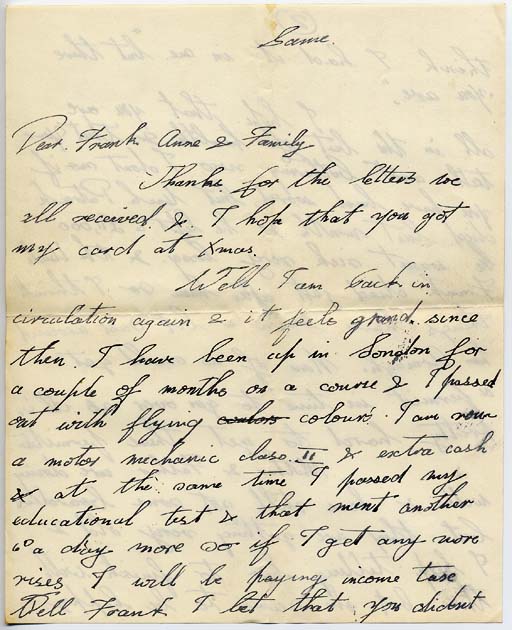 Same.
Dear Frank Anne & Family
Thanks for the letters we
all received. & I hope that you got
my card at Xmas.
Well I am back in
circulation again & it feels grand. since
then I have been up in London for
a couple of months on a course & I passed
out with flying colours. I am now
a motor mechanic class. II & extra cash
& at the same time I passed my
educational test & that ment another
6ᴰ a day more so if I get any more
rises I will be paying income taxe
Well Frank I bet that you didont